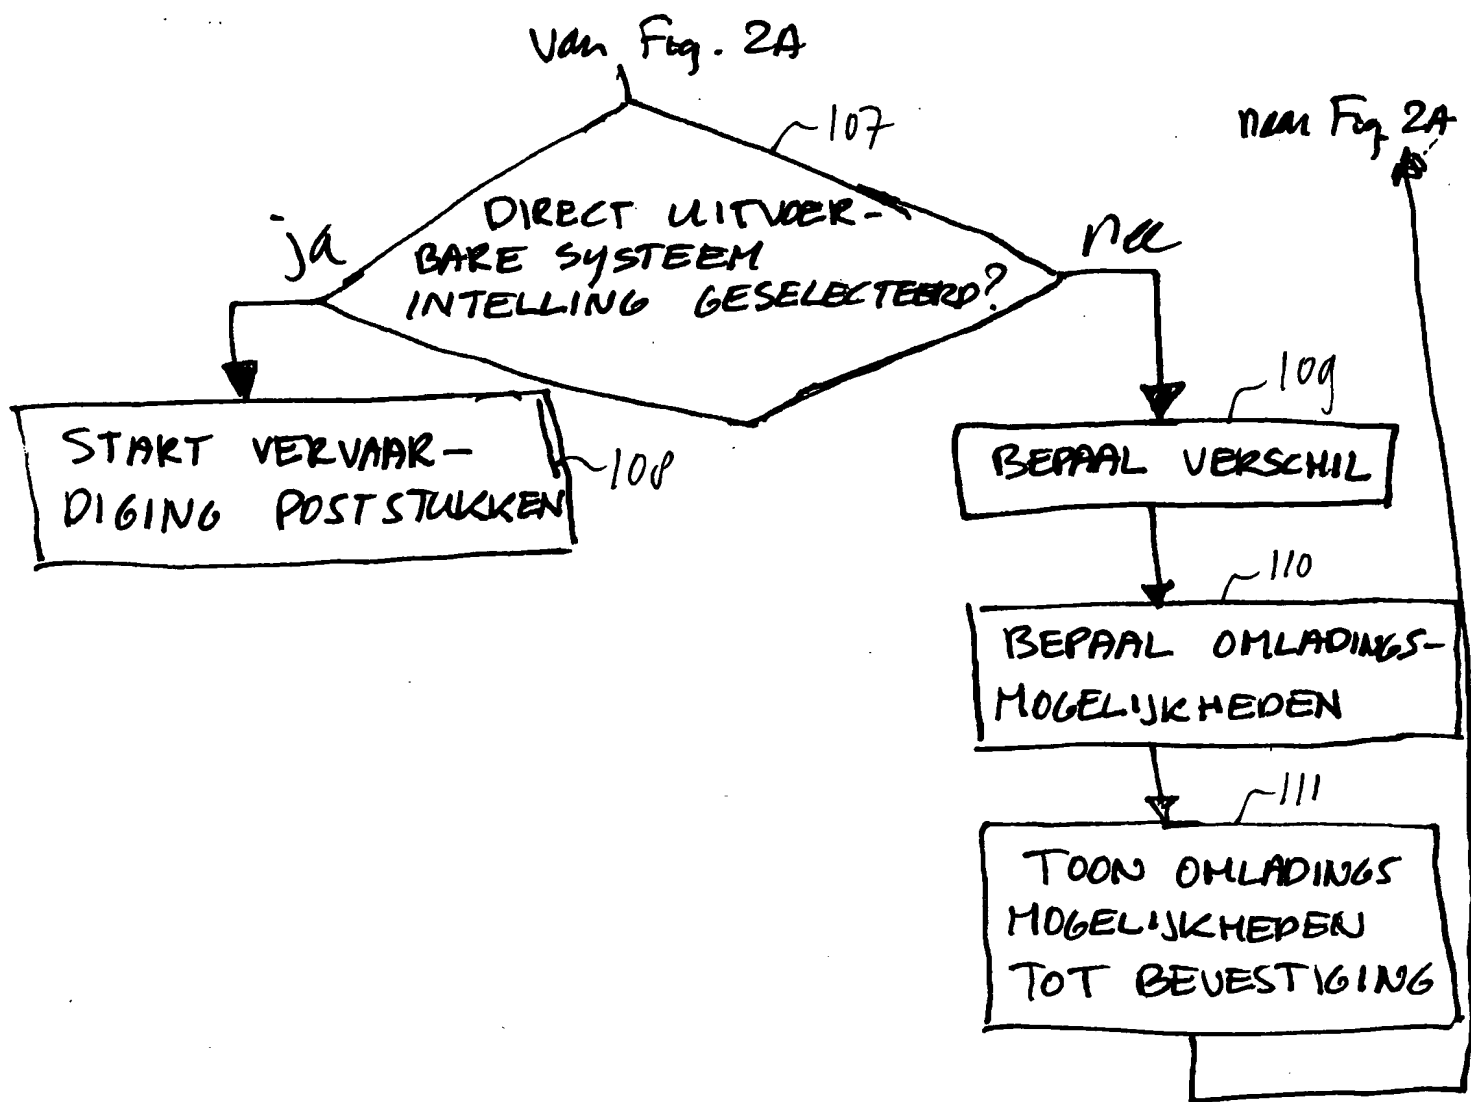 van Fig. 2A
naar Fig 2A
107
DIRECT UITVOER-
BARE SYSTEEM
INTELLING GESELECTEERD?
ja
nee
START VERVAAR-
DIGING POSTSTUKKEN
108
109
BEPAAL VERSCHIL
110
BEPAAL OMLADINGS-
MOGELIJKHEDEN
111
TOON OMLADINGS
MOGELIJKHEDEN
TOT BEVESTIGING